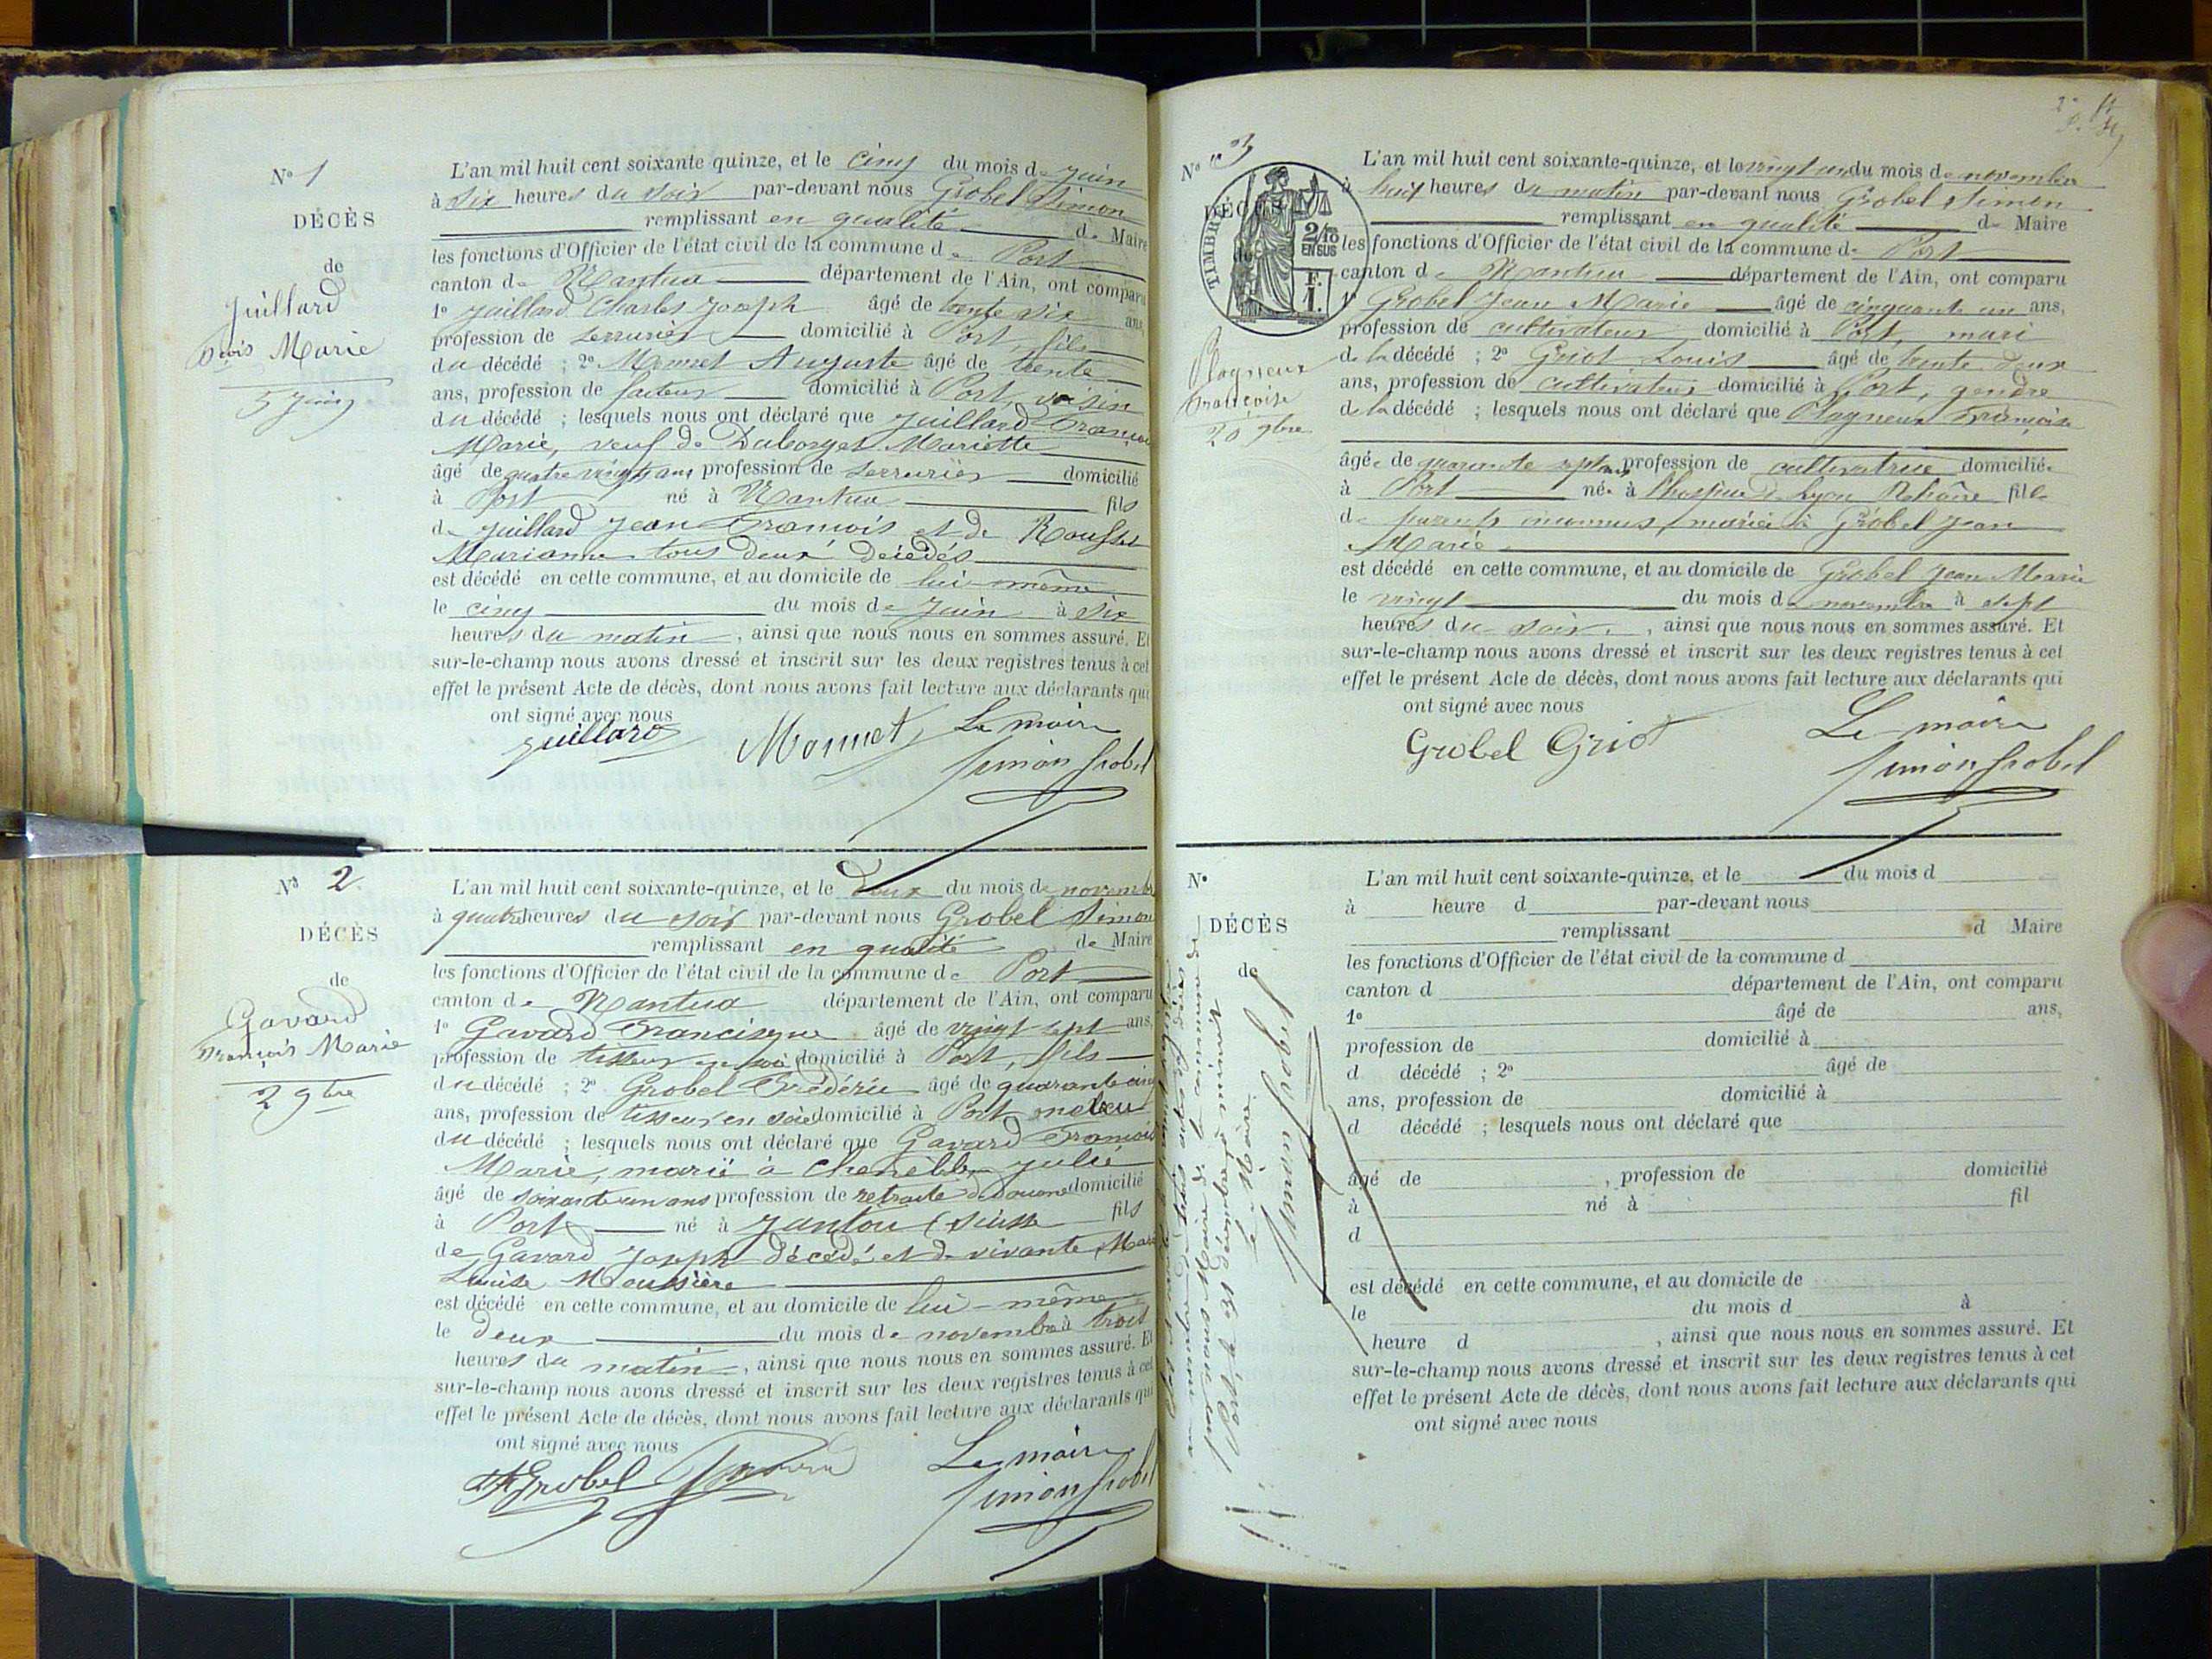 N° 1
DÉCÈS
de
Juillard
Fçois Marie
5 Juin
L'an mil huit cent soixante quinze, et le cinq du mois de Juin
à six heures du soir par-devant nous Grobel Simon
remplissant en qualité de Maire
les fonctions d'Officier de l'état civil de la commune de Port
canton de Nantua département de l'Ain, ont comparu
1° Juillard Charles Joseph âgé de trente six ans,
profession de serrurier domicilié à Port, fils
du décédé ; 2° Monnet Auguste âgé de trente
ans, profession de facteur domicilié à Port, voisin
du décédé ; lesquels nous ont déclaré que Juillard François
Marie, veuf de Duborget Mariette
âgé de quatre vingts ans profession de serrurier domicilié
à Port né à Nantua fils
de Juillard Jean François et de Rousset
Marianne tous deux décédés
est décédé en cette commune, et au domicile de lui-même
le cinq du mois de Juin à six
heures du matin, ainsi que nous nous en sommes assuré. Et
sur-le-champ nous avons dressé et inscrit sur les deux registres tenus à cet
effet le présent Acte de décès, dont nous avons fait lecture aux déclarants qui
ont signé avec nous
Juillard Monnet Le maire
Simon Grobel
N° 2
DÉCÈS
de
Gavard
François Marie
2 9bre
L'an mil huit cent soixante-quinze, et le deux du mois de novembre
à quatre heures du soir par-devant nous Grobel Simon
remplissant en qualité de Maire
les fonctions d'Officier de l'état civil de la commune de Port
canton de Nantua département de l'Ain, ont comparu
1° Gavard Francisque âgé de vingt sept ans,
profession de tisseur en soie domicilié à Port, fils
du décédé ; 2° Grobel Frédéric âgé de quarante cinq
ans, profession de tisseur en soie domicilié à Port neveu
du décédé ; lesquels nous ont déclaré que Gavard François
Marie, marié à Julie
âgé de soixante un ans profession de retraité de Douane domicilié
à Port né à (Suisse fils
de Gavard Joseph décédé et de vivante Marie
Louise Moussière
est décédé en cette commune, et au domicile de lui-même
le deux du mois de novembre à trois
heures du matin, ainsi que nous nous en sommes assuré. Et
sur-le-champ nous avons dressé et inscrit sur les deux registres tenus à cet
effet le présent Acte de décès, dont nous avons fait lecture aux déclarants qui
ont signé avec nous
Grobel Le maire
Simon Grobel
N° 3
DÉCÈS
de
TIMBRE
2/10
EN SUS
F.
1.
Plagneux
Françoise
20 9bre
L'an mil huit cent soixante-quinze, et le vingt un du mois de novembre
à huit heures du matin par-devant nous Grobel Simon
remplissant en qualité de Maire
les fonctions d'Officier de l'état civil de la commune de Port
canton de Nantua département de l'Ain, ont comparu
1° Grobel Jean Marie âgé de cinquante un ans,
profession de cultivateur domicilié à Port, mari
de la décédé ; 2° Griot Louis âgé de trente deux
ans, profession de cultivateur domicilié à Port, gendre
de la décédé ; lesquels nous ont déclaré que Plagneux Françoise
âgée de quarante sept ans profession de cultivatrice domiciliée
à Port née à l'hospice de Lyon Rhône fille
de parents inconnus, mariée à Grobel Jean
Marie
est décédé en cette commune, et au domicile de Grobel Jean Marie
le vingt du mois de novembre à sept
heures du soir, ainsi que nous nous en sommes assuré. Et
sur-le-champ nous avons dressé et inscrit sur les deux registres tenus à cet
effet le présent Acte de décès, dont nous avons fait lecture aux déclarants qui
ont signé avec nous
Grobel Griot Le maire
Simon Grobel
N°
DÉCÈS
de
au nombre de trois actes de décès
par nous Maire de la commune de
Port, le 31 décembre à minuit
le Maire
Simon Grobel
L'an mil huit cent soixante-quinze, et le du mois d
à heure d par-devant nous
remplissant d Maire
les fonctions d'Officier de l'état civil de la commune d
canton d département de l'Ain, ont comparu
1° âgé de ans,
profession de domicilié à
d décédé ; 2° âgé de
ans, profession de domicilié à
d décédé ; lesquels nous ont déclaré que
âgé de , profession de domicilié
à né à fil
d
est décédé en cette commune, et au domicile de
le du mois d à
heure d , ainsi que nous nous en sommes assuré. Et
sur-le-champ nous avons dressé et inscrit sur les deux registres tenus à cet
effet le présent Acte de décès, dont nous avons fait lecture aux déclarants qui
ont signé avec nous